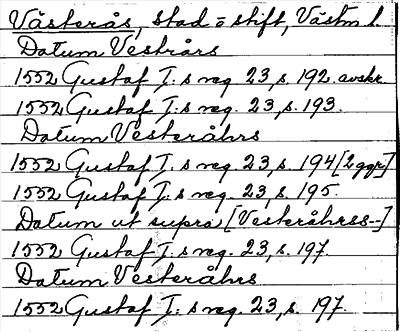 Västerås, stad o stift, Västm l.
Datum Vestrårs
1552 Gustaf I:s reg. 23, s. 192. avskr.
1552 Gustaf I:s reg. 23, s. 193.
Datum Vesteråhrs
1552 Gustaf I:s reg. 23, s. 194 [2 ggr]
1552 Gustaf I:s reg. 23, s. 195.
Datum ut supra [Vesteråhrss--]
1552 Gustaf I:s reg. 23, s. 197.
Datum Vesteråhrs
1552 Gustaf I:s reg. 23, s. 197.